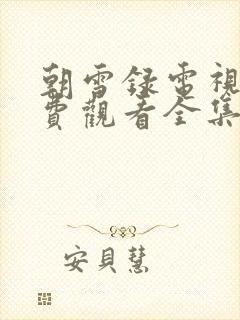 朝雪録電視
費觀看全集
安貝慧